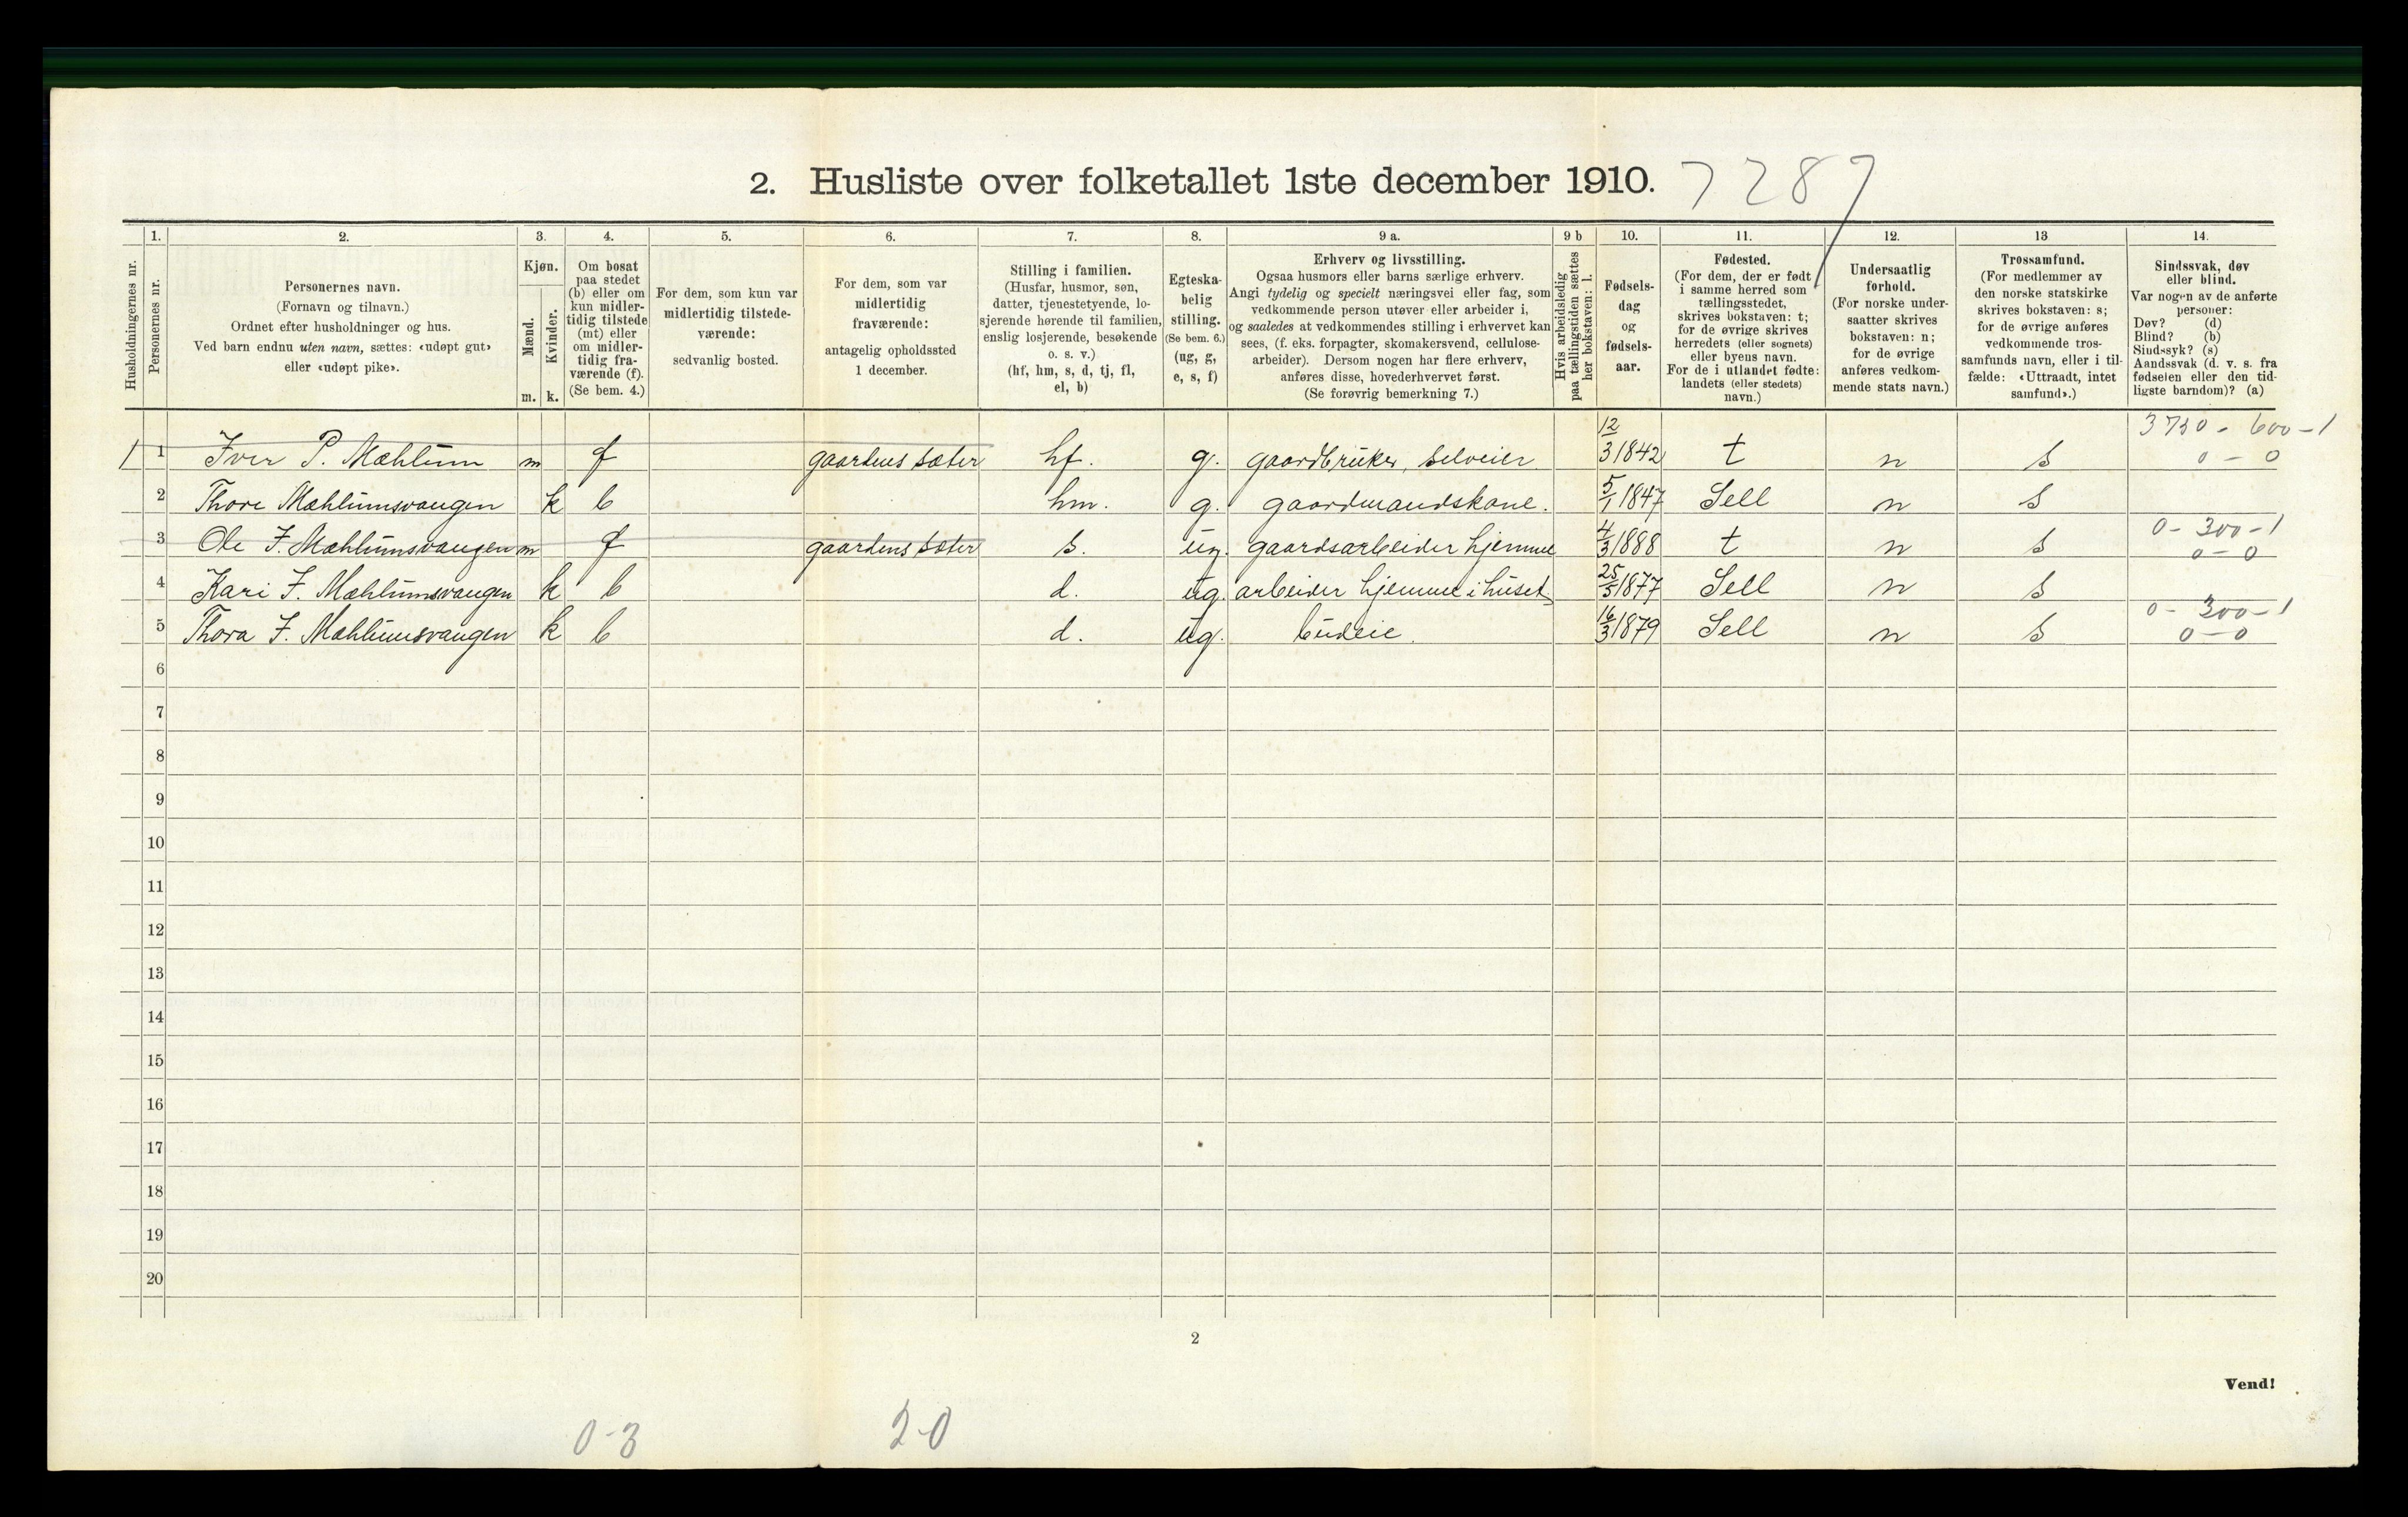 2. Husliste over folketallet 1ste december 1910. 7287
1. 2. 3. 4. 5. 6. 7. 8. 9 a. 9 b 10. 11. 12. 13 14.
Husholdningernes nr.
Personernes nr.
Personernes navn.
(Fornavn og tilnavn.)
Ordnet efter husholdninger og hus.
Ved barn endnu uten navn, sættes: «udøpt gut»
eller «udøpt pike».
Kjøn.
Mænd.
Kvinder.
m. k.
Om bosat
paa stedet
(b) eller om
kun midler-
tidig tilstede
(mt) eller
om midler-
tidig fra-
værende (f).
(Se bem. 4.)
For dem, som kun var
midlertidig tilstede-
værende:
sedvanlig bosted.
For dem, som var
midlertidig
fraværende:
antagelig opholdssted
1 december.
Stilling i familien.
(Husfar, husmor, søn,
datter, tjenestetyende, lo-
sjerende hørende til familien,
enslig losjerende, besøkende
o. s. v.)
(hf, hm, s, d, tj, fl,
el, b)
Egteska-
belig
stilling.
(Se bem. 6.)
(ug, g,
e, s, f)
Erhverv og livsstilling.
Ogsaa husmors eller barns særlige erhverv.
Angi tydelig og specielt næringsvei eller fag, som
vedkommende person utøver eller arbeider i,
og saaledes at vedkommendes stilling i erhvervet kan
sees, (f. eks. forpagter, skomakersvend, cellulose-
arbeider). Dersom nogen har flere erhverv,
anføres disse, hovederhvervet først.
(Se forøvrig bemerkning 7.)
Hvis arbeidsledig
paa tællingstiden sættes
her bokstaven: l.
Fødsels-
dag
og
fødsels-
aar.
Fødested.
(For dem, der er født
i samme herred som
tællingsstedet,
skrives bokstaven: t;
for de øvrige skrives
herredets (eller sognets)
eller byens navn.
For de i utlandet fødte:
landets (eller stedets)
navn.)
Undersaatlig
forhold.
(For norske under-
saatter skrives
bokstaven: n;
for de øvrige
anføres vedkom-
mende stats navn.)
Trossamfund.
(For medlemmer av
den norske statskirke
skrives bokstaven: s;
for de øvrige anføres
vedkommende tros-
samfunds navn, eller i til-
fælde: «Uttraadt, intet
samfund».)
Sindssvak, døv
eller blind.
Var nogen av de anførte
personer:
Døv? (d)
Blind? (b)
Sindssyk? (s)
Aandssvak (d. v. s. fra
fødselen eller den tid-
ligste barndom)? (a)
3730 - 600 - 1
1 1 Iver P. Mæhlum m f gaardens sæter hf. g. gaardbruker, selveier 12/3 1842 t n s 0 - 0
2 Thore Mæhlumsvangen k b hm. g. gaardmandskone. 5/1 1847 Sell n s
0 - 300 - 1
3 Ole I. Mæhlumsvangen m f gaardens sæter s. ug. gaardsarbeider hjemme 4/3 1888 t n s 0 - 0
4 Kari I. Mæhlumsvangen k b d. ug. arbeider hjemme i huset 25/5 1877 Sell n s
0 - 300 - 1
5 Thora I. Mæhlumsvangen k b d. ug. budeie. 16/3 1879 Sell n s 0 - 0
6
7
8
9
10
11
12
13
14
15
16
17
18
19
20
2
Vend!
0-3 2-0